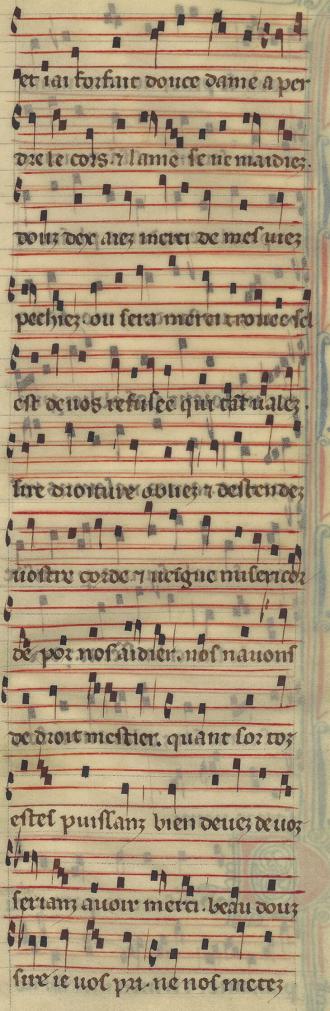 et iai forfait douce dame a per
dre le cors ⁊ lame se ne maidiez.
douz dex aiez merci de mes viez
pechiez. ou sera merci trouee sel
est de vos refusee qui tāt valez.
sire droiture obliez ⁊ destendez
vostre corde ⁊ veigne misericor
de por nos aidier. nos navons
de droit mestier. quant sor toz
estes puissanz bien devez de voz
serianz avoir merci. beau douz
sire ie vos pri. ne nos metez